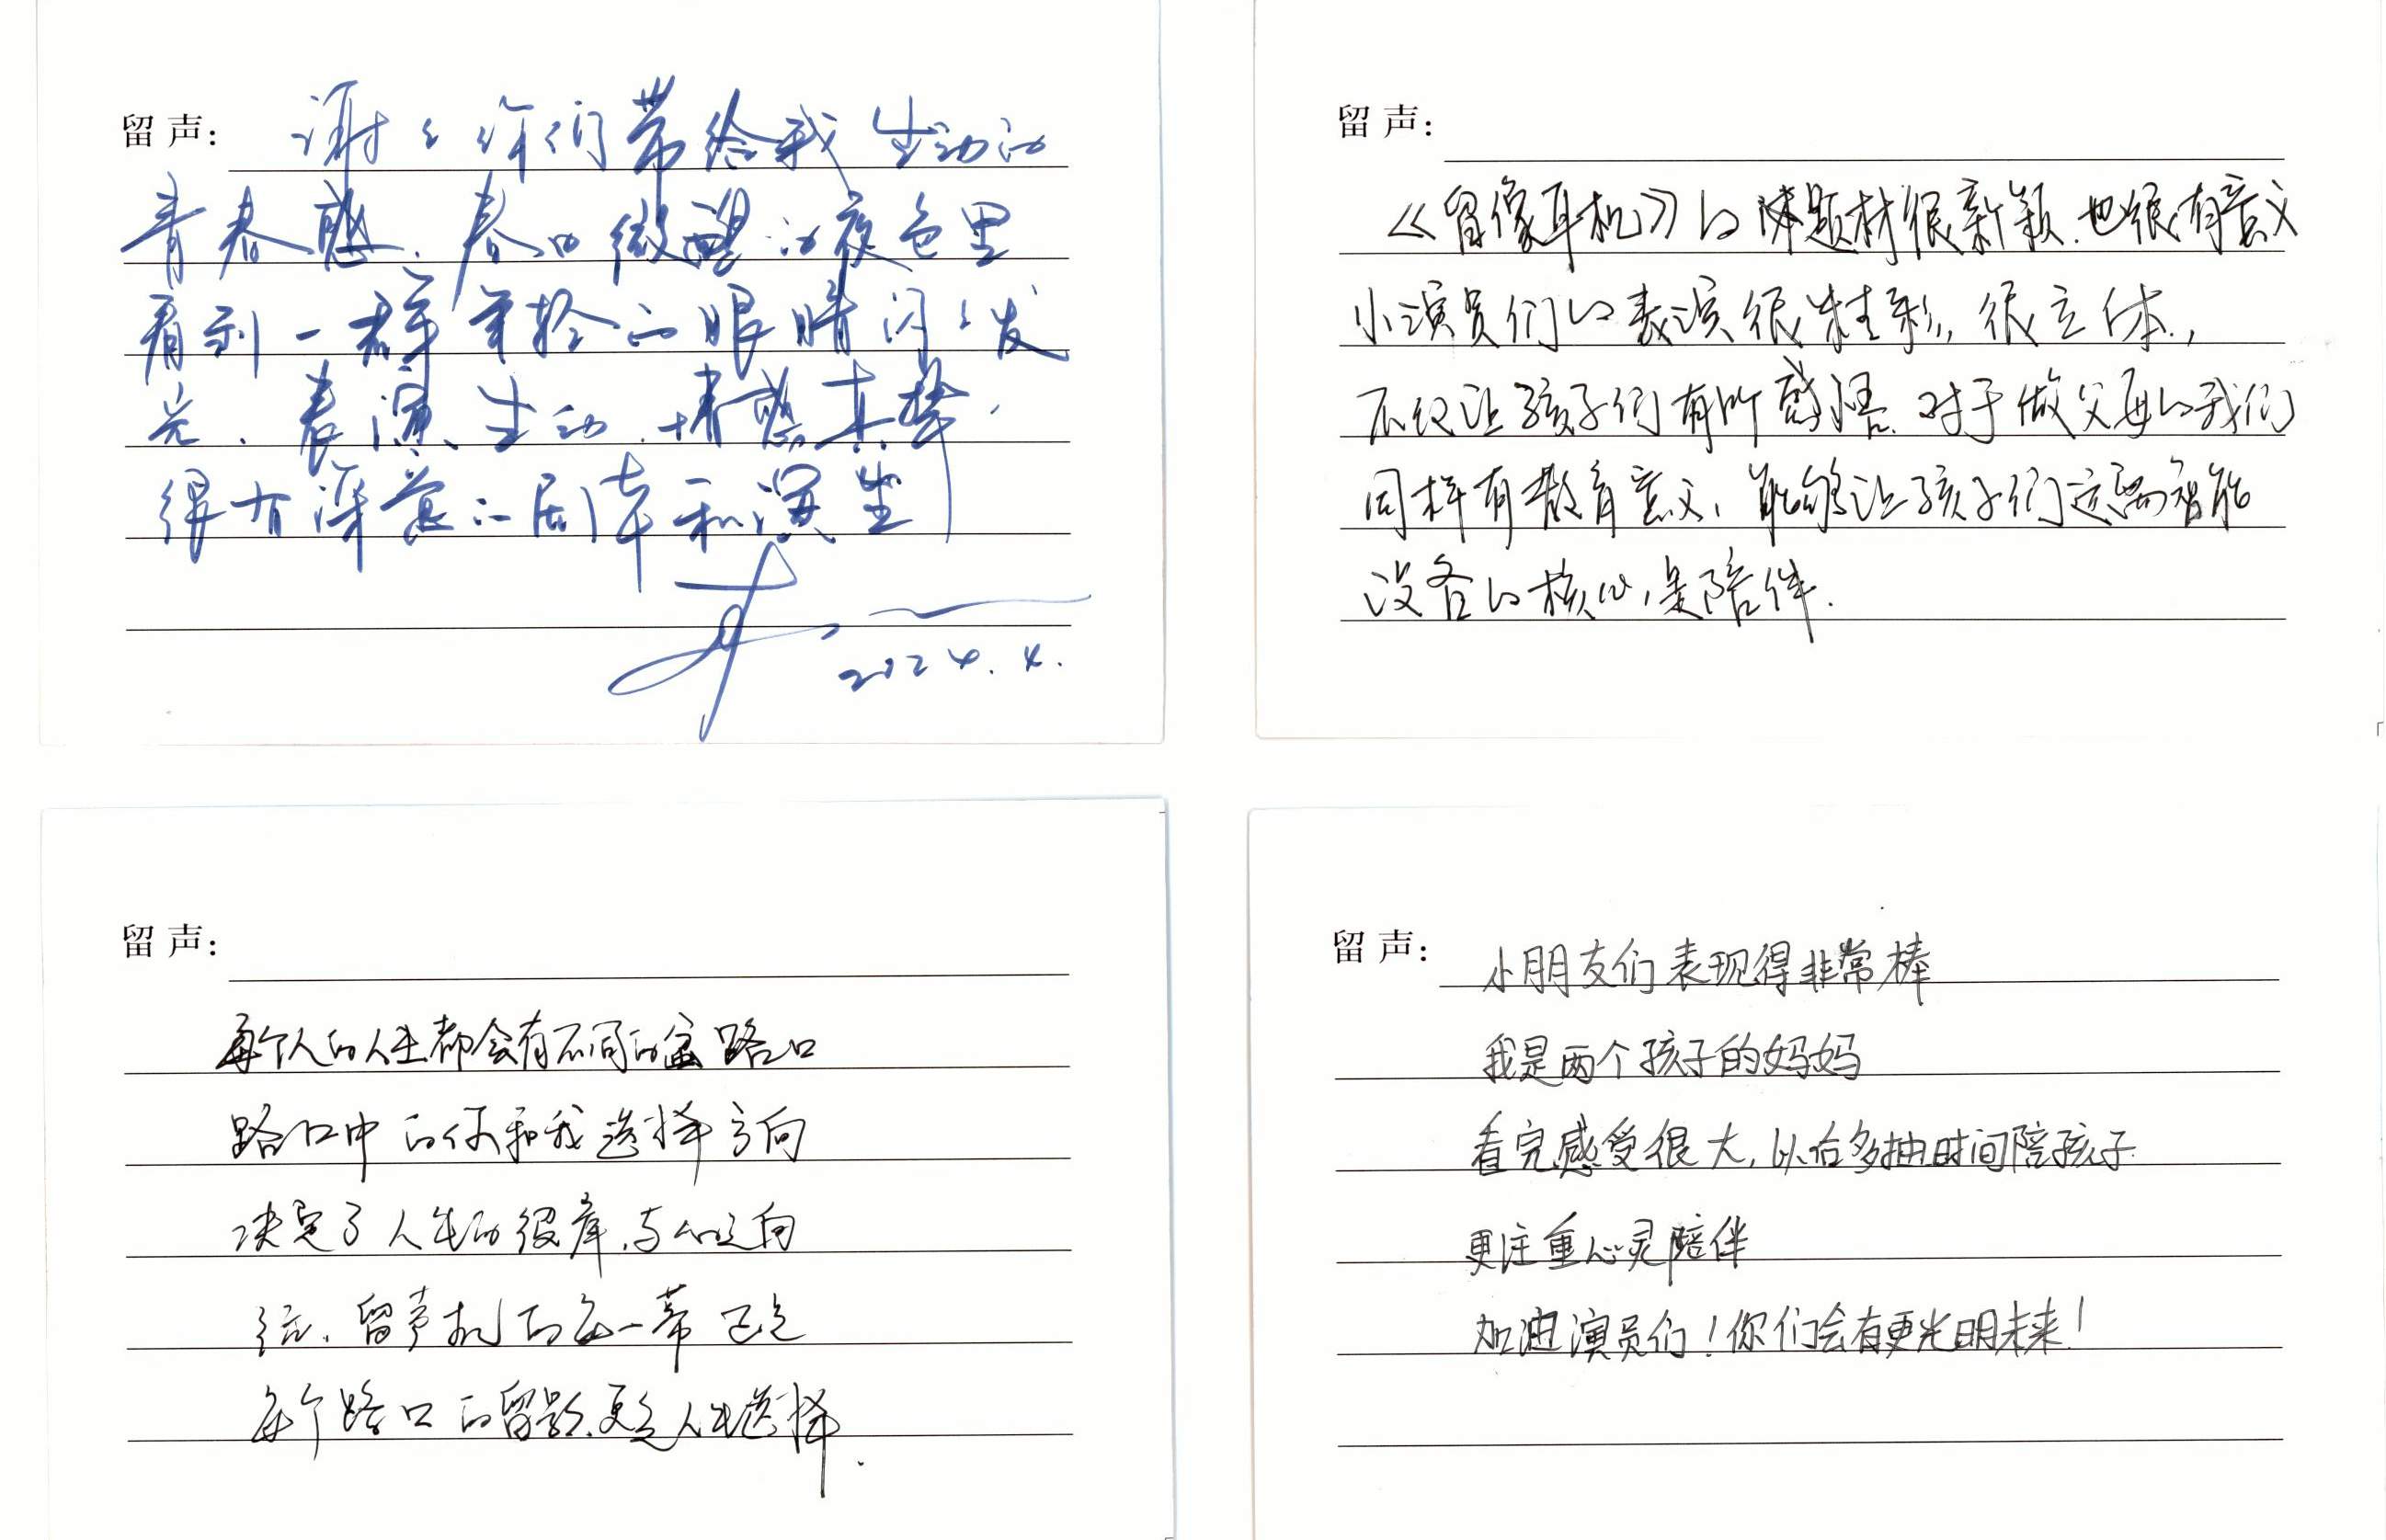 留声: 谢谢你们带给我生动的
青春感.春的微醺的夜色里
看到一群年轻的眼睛闪闪发
光.表演生动.情感真挚.
很有深意的剧本和演出
2024.4.
留声:
《留像耳机》的题材很新颖.也很有意义
小演员们的表演很精彩,很立体,
不仅让孩子们有所感悟.对于做父母的我们
同样有教育意义,能够让孩子们远离智能
设备的核心,是陪伴.
留声:
每个人的人生都会有不同的路口
路口中的你和我选择方向
决定了人生的彼岸,与
留声机的每一幕正是
每个路口的留影,更是人生选择.
留声: 小朋友们表现得非常棒
我是两个孩子的妈妈
看完感受很大,以后多抽时间陪孩子
更注重心灵陪伴
加油演员们!你们会有更光明未来!